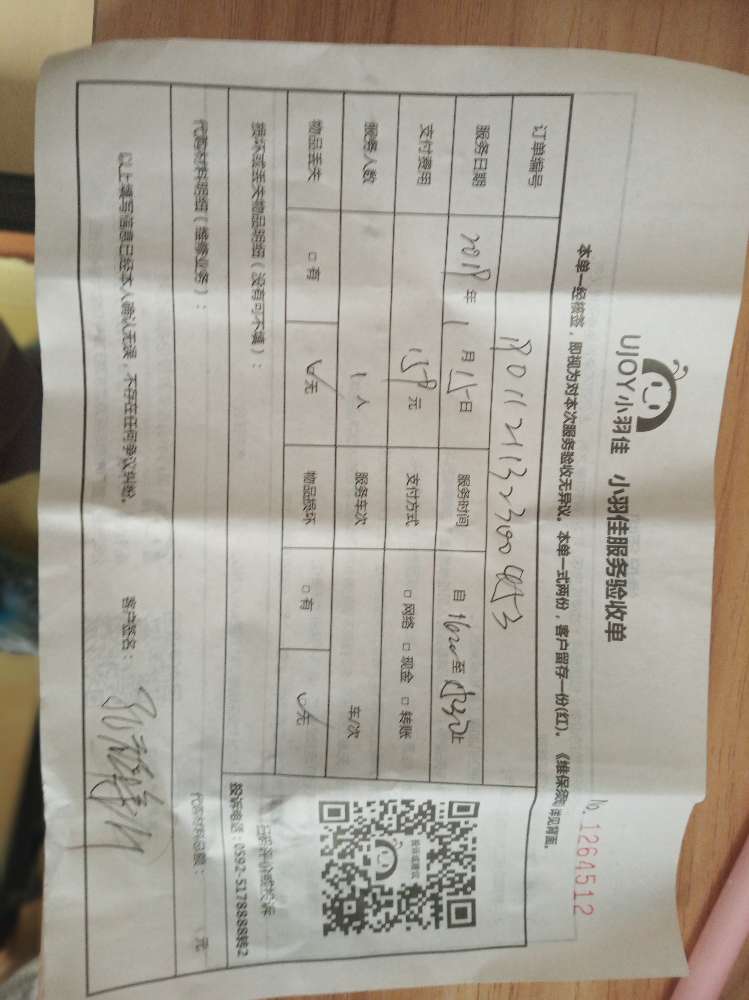 UJOY小羽佳 小羽佳服务验收单
No. 1264512
本单一经核签，即视为对本次服务验收无异议。本单一式两份，客户留存一份(红)。《维保须知》详见背面。
订单编号
服务日期 2018年1月15日 服务时间 自1620至
支付费用 158元 支付方式 □网络 □现金 □转账
服务人数 1人 服务车次 车/次
物品丢失 □有 ☑无 物品损坏 □有 ☑无
损坏或丢失物品明细（没有可不填）：
扫码评价或投诉
投诉电话：0592-5178888转2
代购材料明细（维修业务）： 代购材料总额： 元
以上填写信息已经本人确认无误，不存在任何争议纠纷。 客户签名：